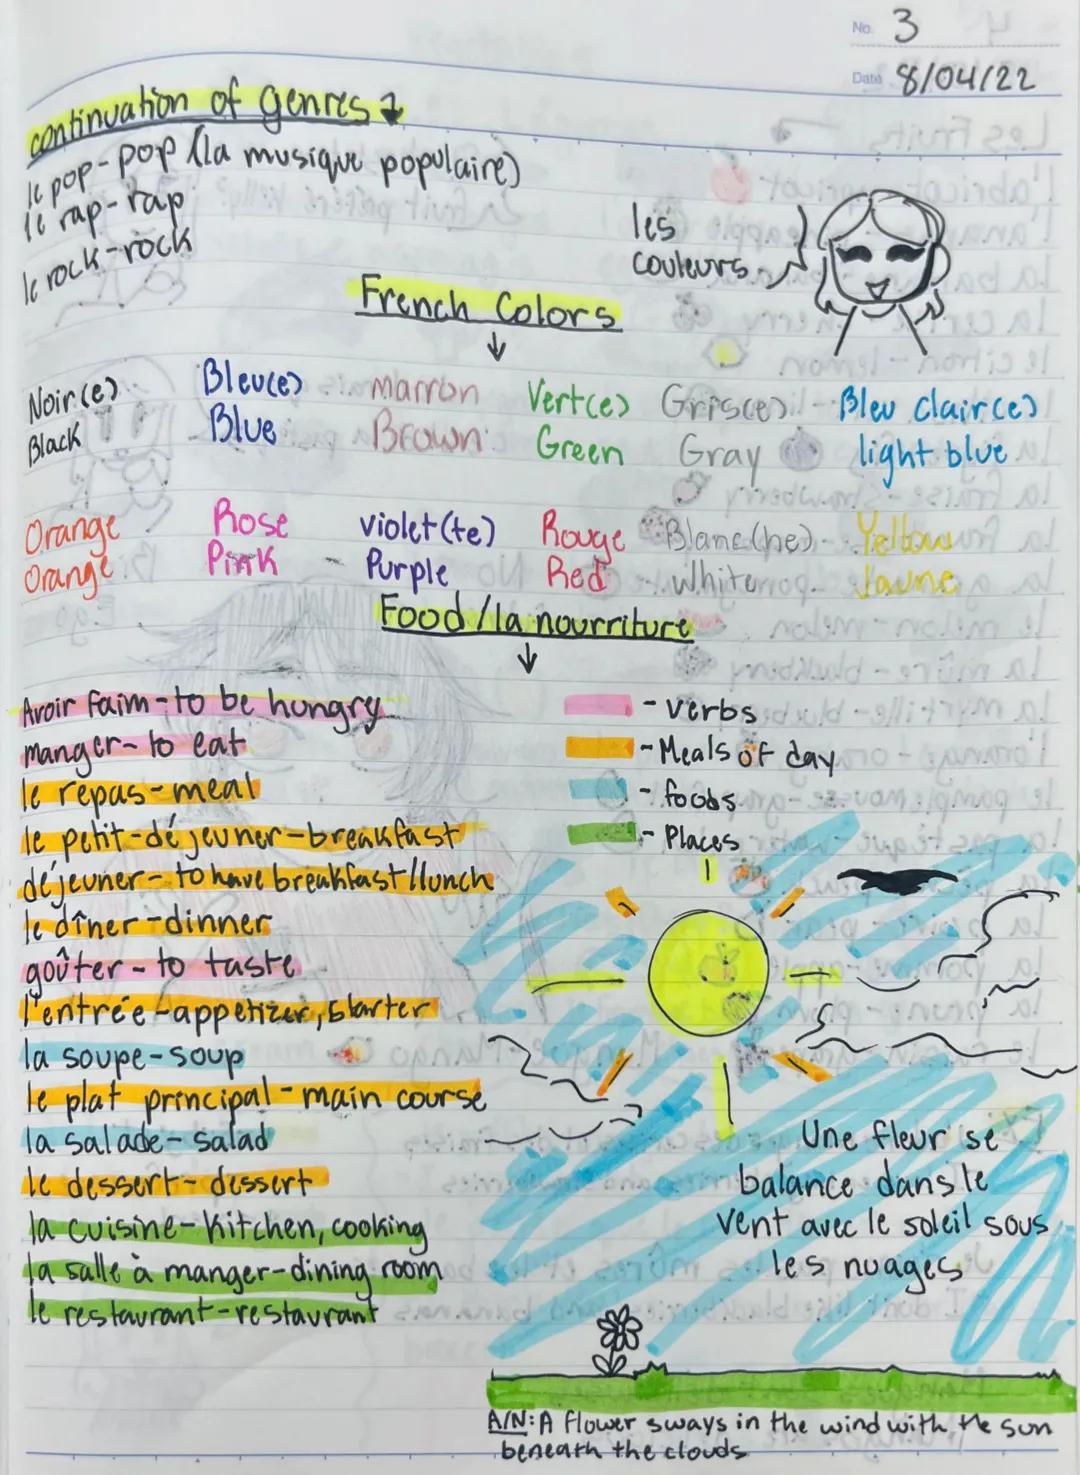 No. 3
Date 8/04/22
continuation of genres
le pop-pop (la musique populaire)
le rap-rap
le rock-rock
les
couleurs
French Colors
Noir(e) Bleu(e) Marron Vert(e) Gris(e) Bleu clair(e)
Black Blue Brown Green Gray light blue
Orange Rose violet(te) Rouge Blanc(he) Yellow
Orange Pink Purple Red White Jaune
Food/la nourriture
Avoir faim-to be hungry
manger-to eat
le repas-meal
le petit-déjeuner-breakfast
déjeuner-to have breakfast/lunch
le dîner-dinner
goûter-to taste
l'entrée-appetizer, starter
la soupe-soup
le plat principal-main course
la salade-salad
le dessert-dessert
la cuisine-kitchen, cooking
la salle à manger-dining room
le restaurant-restaurant
- verbs
- Meals of day
- foods
- Places
Une fleur se
balance dans le
vent avec le soleil sous
les nuages
A/N: A flower sways in the wind with the sun
beneath the clouds